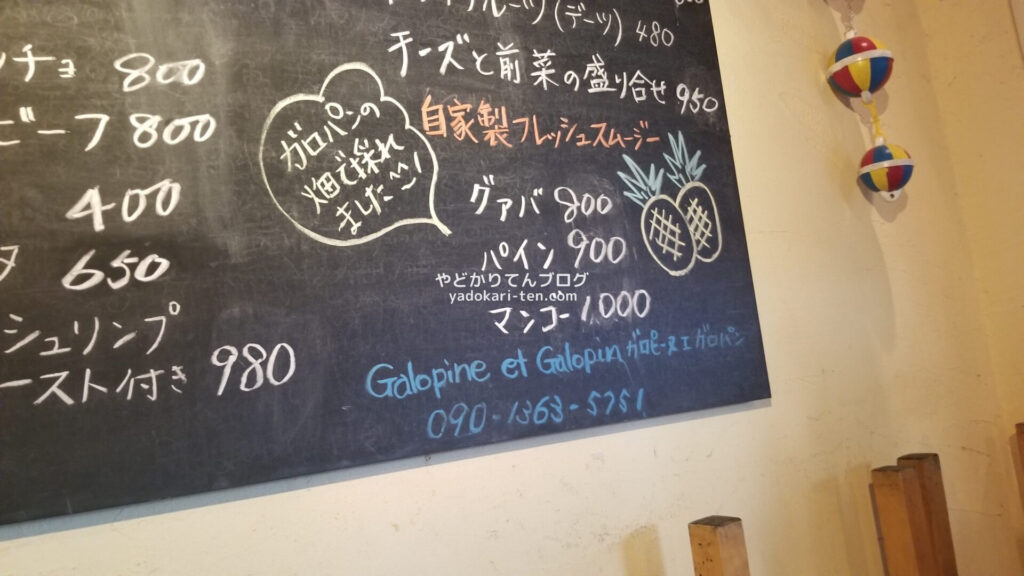 800
800
400
650
シュリンプ
付き 980
(デーツ) 480
チーズと前菜の盛り合せ 950
自家製フレッシュスムージー
ガロパンの
畑で採れ
ました
グァバ 800
パイン 900
マンゴー 1,000
Galopine et Galopin ガロピーヌ エ ガロパン
090-1363-5751
やどかりてんブログ
yadokari-ten.com